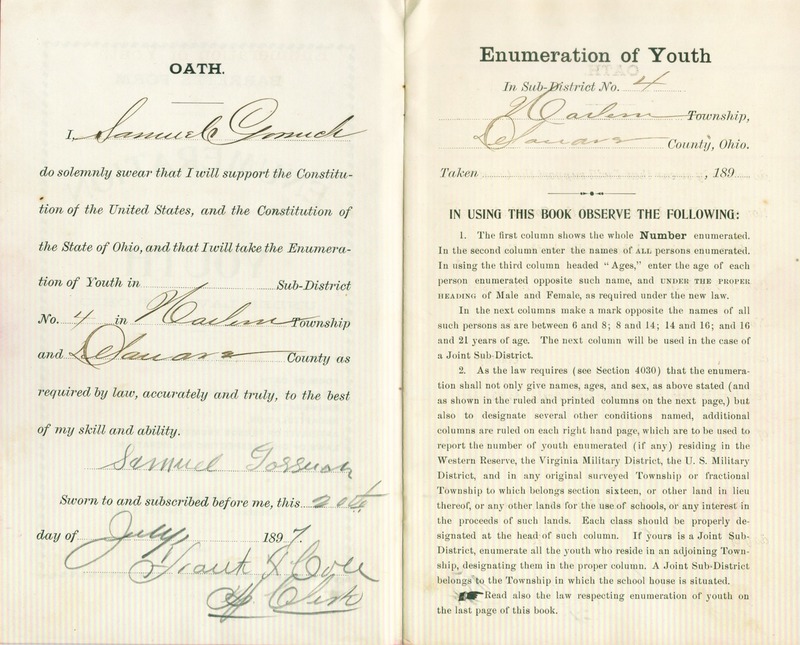 OATH.
I, Samuel Gorsuch
do solemnly swear that I will support the Constitu-
tion of the United States, and the Constitution of
the State of Ohio, and that I will take the Enumera-
tion of Youth in Sub-District
No. 4 in Harlem Township
and Delaware County as
required by law, accurately and truly, to the best
of my skill and ability.
Samuel Gorsuch
Sworn to and subscribed before me, this 20th
day of July 1897.
Cole
Clerk
Enumeration of Youth
In Sub-District No. 4
Harlem Township,
Delaware County, Ohio.
Taken , 189
IN USING THIS BOOK OBSERVE THE FOLLOWING:
1. The first column shows the whole Number enumerated.
In the second column enter the names of ALL persons enumerated.
In using the third column headed "Ages," enter the age of each
person enumerated opposite such name, and UNDER THE PROPER
HEADING of Male and Female, as required under the new law.
In the next columns make a mark opposite the names of all
such persons as are between 6 and 8; 8 and 14; 14 and 16; and 16
and 21 years of age. The next column will be used in the case of
a Joint Sub-District.
2. As the law requires (see Section 4030) that the enumera-
tion shall not only give names, ages, and sex, as above stated (and
as shown in the ruled and printed columns on the next page,) but
also to designate several other conditions named, additional
columns are ruled on each right hand page, which are to be used to
report the number of youth enumerated (if any) residing in the
Western Reserve, the Virginia Military District, the U. S. Military
District, and in any original surveyed Township or fractional
Township to which belongs section sixteen, or other land in lieu
thereof, or any other lands for the use of schools, or any interest in
the proceeds of such lands. Each class should be properly de-
signated at the head of such column. If yours is a Joint Sub-
District, enumerate all the youth who reside in an adjoining Town-
ship, designating them in the proper column. A Joint Sub-District
belongs to the Township in which the school house is situated.
Read also the law respecting enumeration of youth on
the last page of this book.